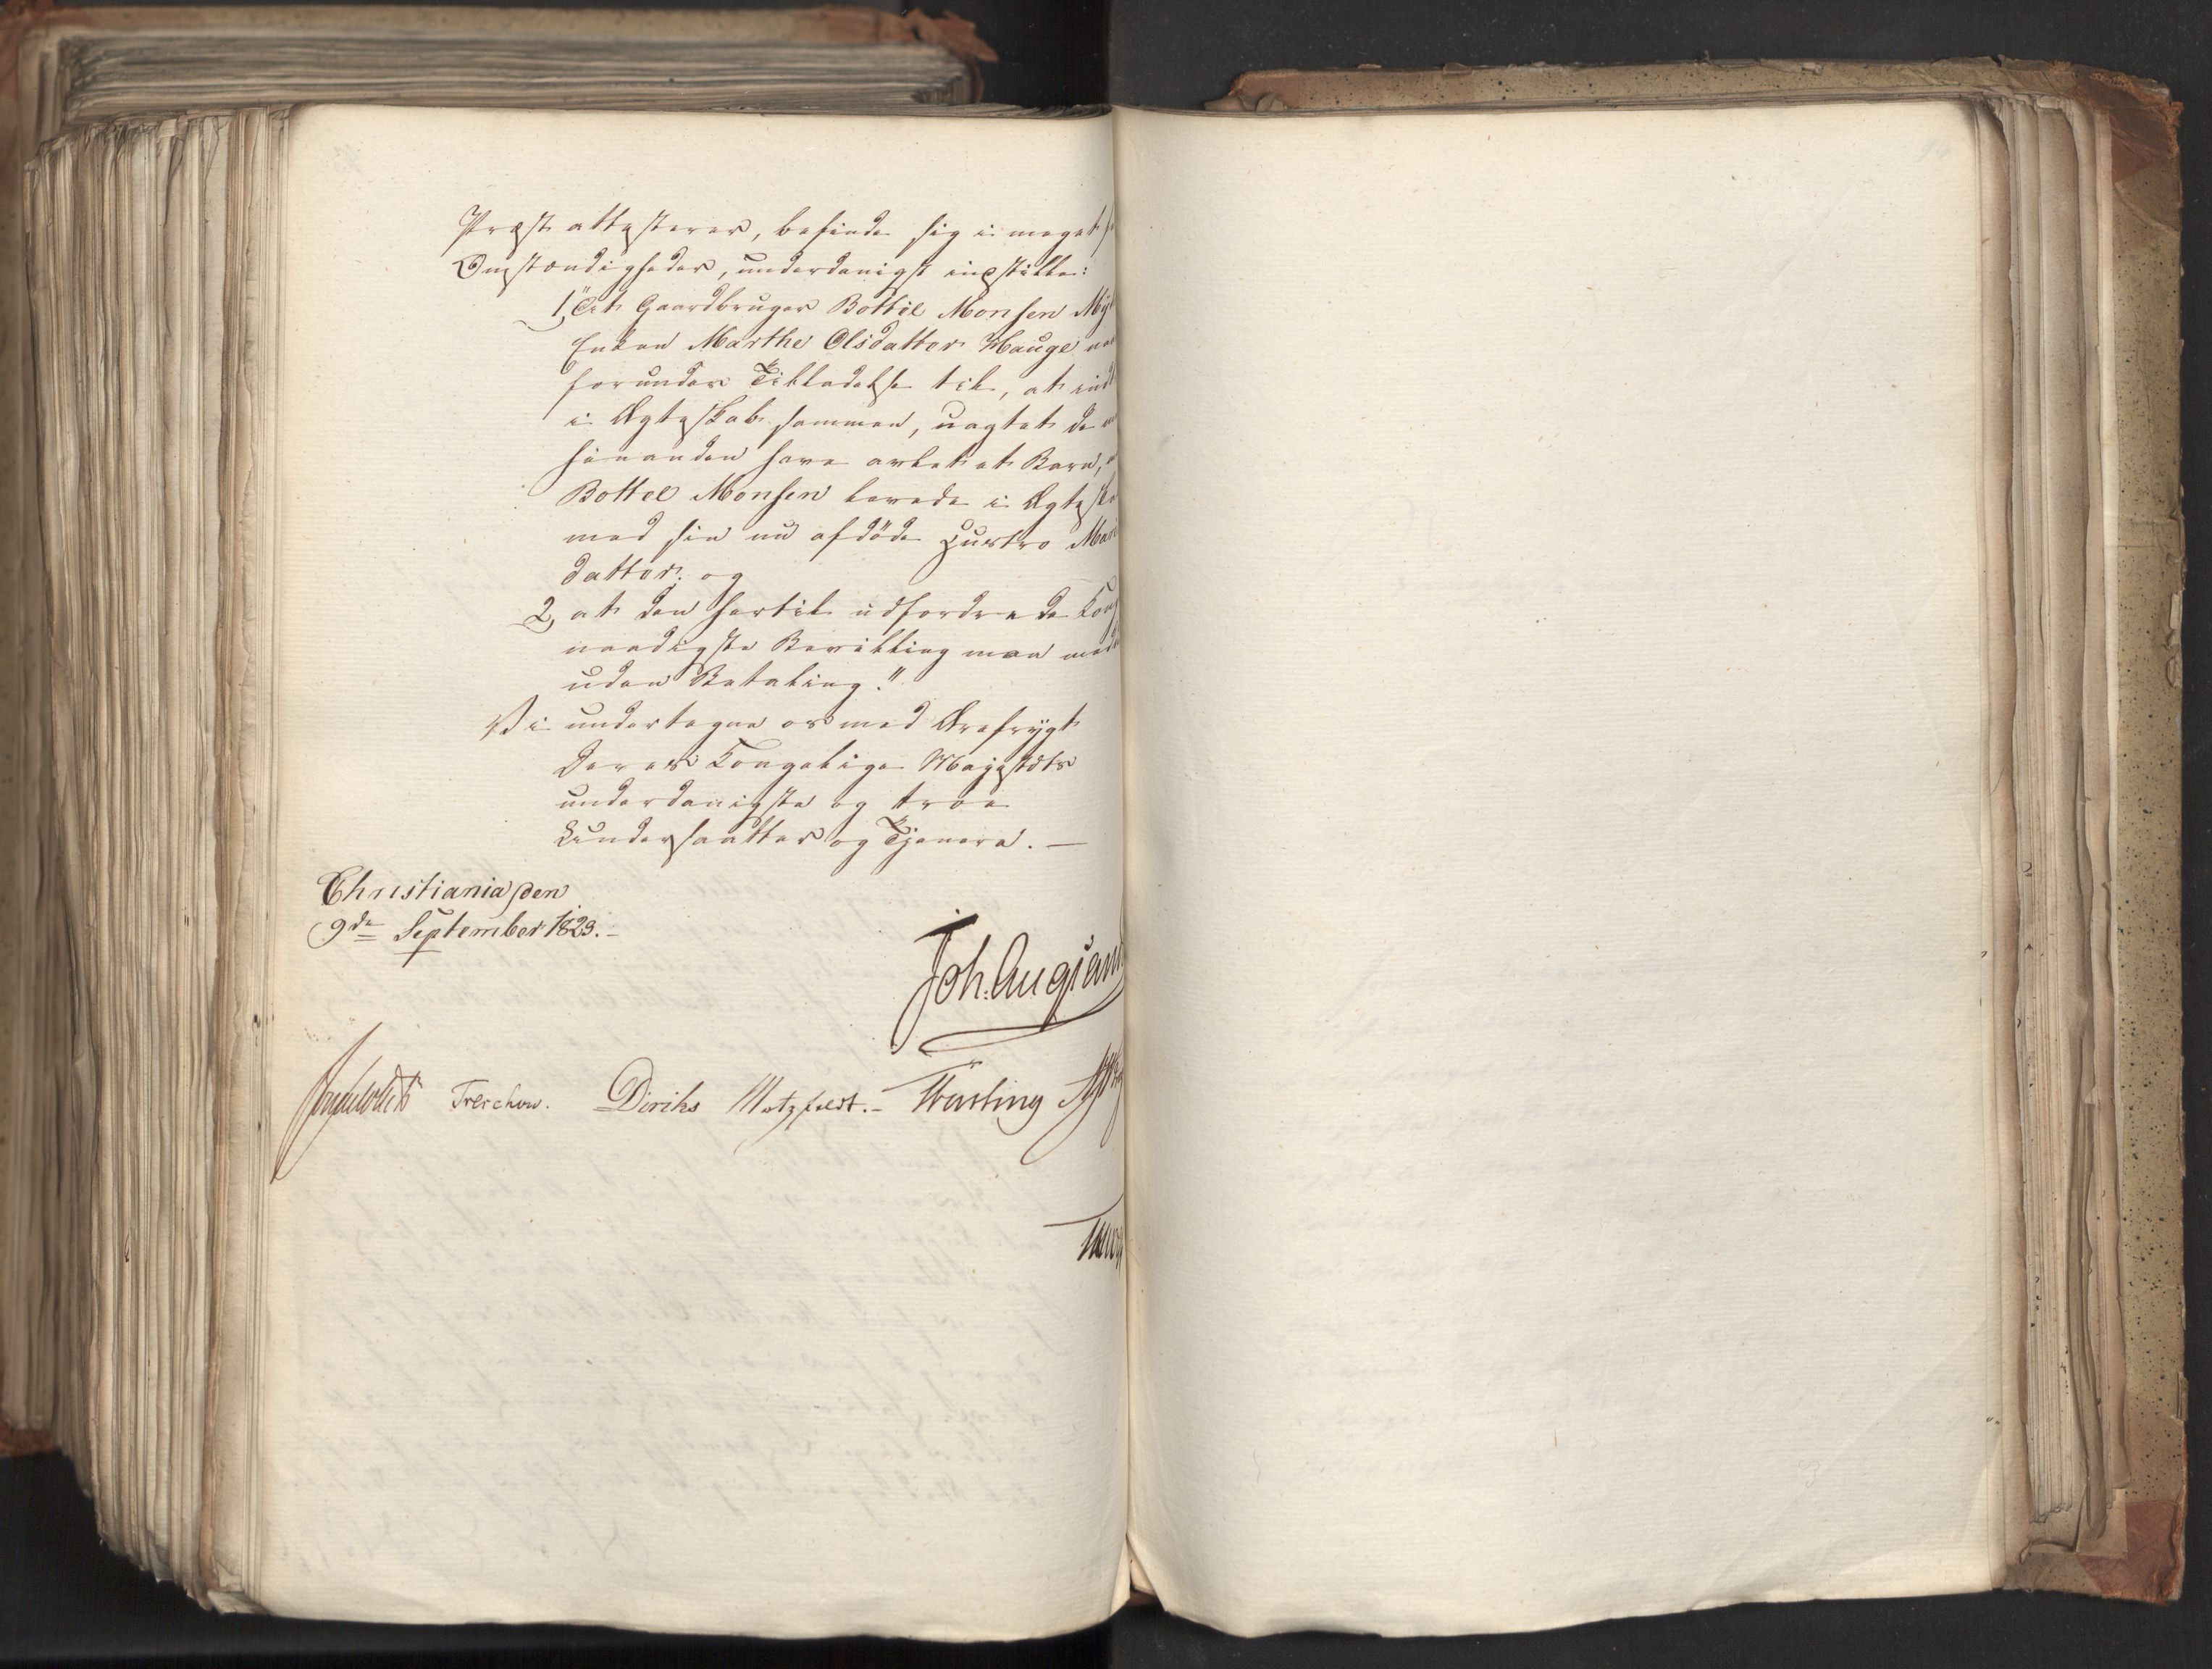 Præst attesterer, befinde sig i meget
Omstændigheder, underdanigst indstille:
1, "At Gaardbruger Bottel Monsen
Enken Marthe Olsdatter Hauge
forundes Tilladelse til, at
i Ægteskab sammen, uagtet de
hinanden have avlet et Barn,
Bottel Monsen levede i
med sin nu afdøde Hustro
datter; og
2, at den hertil udfordrende
naadigste Bevilling maa
uden Betaling."
Vi undertegne os med Ærefrygt
Deres Kongelige Majestæts
underdanigste og troe
Undersaatter og Tjenere. —
Christiania den
9de September 1823. -
Joh. Aug. Sand
Treschow. Diriks Motzfeldt. -